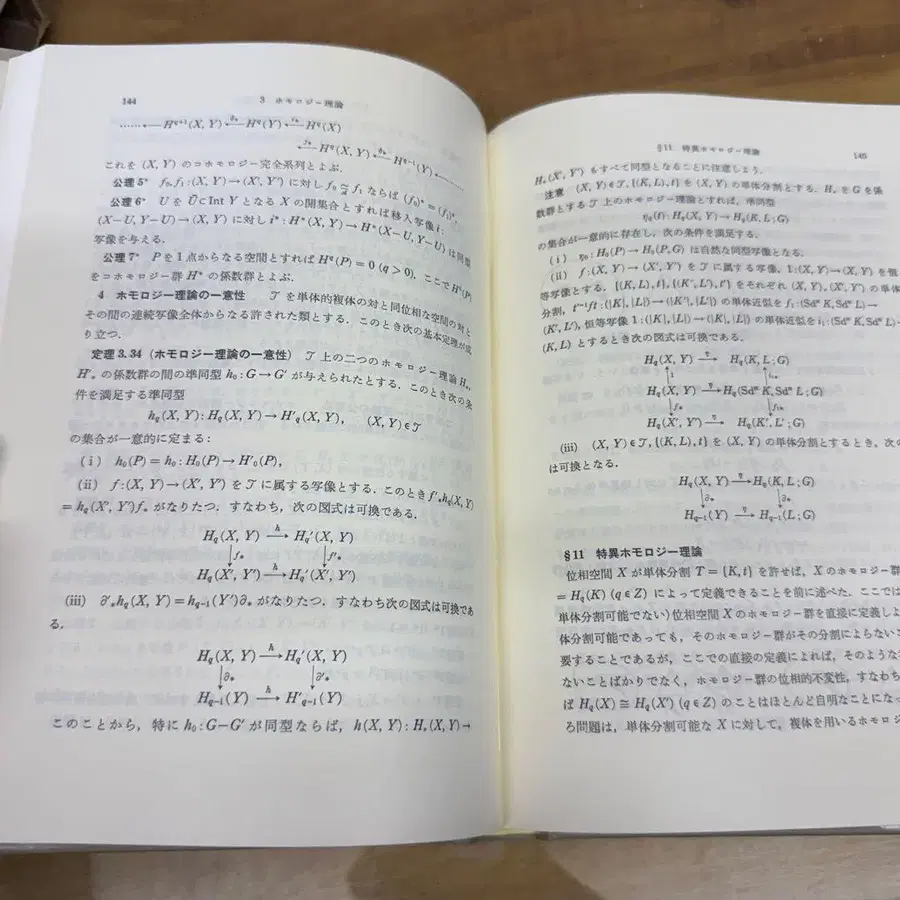 144 3 ホモロジー理論
……←H^{q+1}(X, Y) ←^{δ*} H^q(Y) ←^{i*} H^q(X)
←^{j*} H^q(X, Y) ←^{δ*} H^{q-1}(Y)←………
これを (X, Y) のコホモロジー完全系列とよぶ.
公理5* f₀, f₁:(X, Y)→(X', Y') に対し f₀≃f₁ ならば (f₀)*=(f₁)*.
公理6* U を Ū⊂Int Y となる X の開集合とすれば移入写像 i:
(X−U, Y−U)→(X, Y) に対し i*:H*(X, Y)→H*(X−U, Y−U) は同型
写像を与える.
公理7* P を1点からなる空間とすれば H^q(P)=0 (q>0). ここで H⁰(P)
をコホモロジー群 H* の係数群とよぶ.
4 ホモロジー理論の一意性 𝒯 を単体的複体の対と同位相な空間の対と
その間の連続写像全体からなる許された類とする. このとき次の基本定理が成
り立つ.
定理3.34 (ホモロジー理論の一意性) 𝒯 上の二つのホモロジー理論 H*,
H'* の係数群の間の準同型 h₀:G→G' が与えられたとする. このとき次の条
件を満足する準同型
h_q(X, Y):H_q(X, Y)→H'_q(X, Y), (X, Y)∈𝒯
の集合が一意的に定まる:
(i) h₀(P)=h₀:H₀(P)→H'₀(P),
(ii) f:(X, Y)→(X', Y') を 𝒯 に属する写像とする. このとき f'*h_q(X, Y)
=h_q(X', Y')f* がなりたつ. すなわち, 次の図式は可換である.
H_q(X, Y) —^h→ H_q'(X, Y)
↓f* ↓f'*
H_q(X', Y') —^h→ H_q'(X', Y')
(iii) ∂'*h_q(X, Y)=h_{q-1}(Y')∂* がなりたつ. すなわち次の図式は可換であ
る.
H_q(X, Y) —^h→ H_q'(X, Y)
↓∂* ↓∂'*
H_{q-1}(Y) —^h→ H'_{q-1}(Y)
このことから, 特に h₀:G−G' が同型ならば, h(X, Y):H*(X, Y)→
§11 特異ホモロジー理論 145
H*(X', Y') もすべて同型となることに注意しよう.
注意 (X, Y)∈𝒯, {(K, L), t} を (X, Y) の単体分割とする. H* を G を係
数群とする 𝒯 上のホモロジー理論とすれば, 準同型
η_q(t): H_q(X, Y)→H_q(K, L ; G)
の集合が一意的に存在し, 次の条件を満足する.
(i) η₀:H₀(P)→H₀(P, G) は自然な同型写像となる.
(ii) f:(X, Y)→(X', Y') を 𝒯 に属する写像, 1:(X, Y)→(X, Y) を恒
等写像とする. {(K, L), t}, {(K', L'), t'} をそれぞれ (X, Y), (X', Y') の単体
分割, t'⁻¹ft:(|K|, |L|)→(|K'|, |L'|) の単体近似を f₁:(Sdⁿ K, Sdⁿ L)→
(K', L'), 恒等写像 1:(|K|, |L|)→(|K|, |L|) の単体近似を i₁:(Sdⁿ K, Sdⁿ L)→
(K, L) とするとき次の図式は可換である.
H_q(X, Y) —^η→ H_q(K, L ; G)
↑1 ↑i₁*
H_q(X, Y) —^η→ H_q(Sdⁿ K, Sdⁿ L ; G)
↓f* ↓f₁*
H_q(X', Y') —^η→ H_q(K', L' ; G)
(iii) (X, Y)∈𝒯, {(K, L), t} を (X, Y) の単体分割とするとき, 次の
は可換となる.
H_q(X, Y) —^η→ H_q(K, L ; G)
↓∂* ↓∂*
H_{q-1}(Y) —^η→ H_{q-1}(L ; G)
§11 特異ホモロジー理論
位相空間 X が単体分割 T={K, t} を許せば, X のホモロジー群
=H_q(K) (q∈Z) によって定義できることを前に述べた. ここでは
単体分割可能でない) 位相空間 X のホモロジー群を直接に定義しよ
体分割可能であっても, そのホモロジー群がその分割によらないこ
要することであるが, ここでの直接の定義によれば, そのような
ないことばかりでなく, ホモロジー群の位相的不変性, すなわち
ば H_q(X)≅H_q(X') (q∈Z) のことはほとんど自明なことになっ
ろ問題は, 単体分割可能な X に対して, 複体を用いるホモロジ